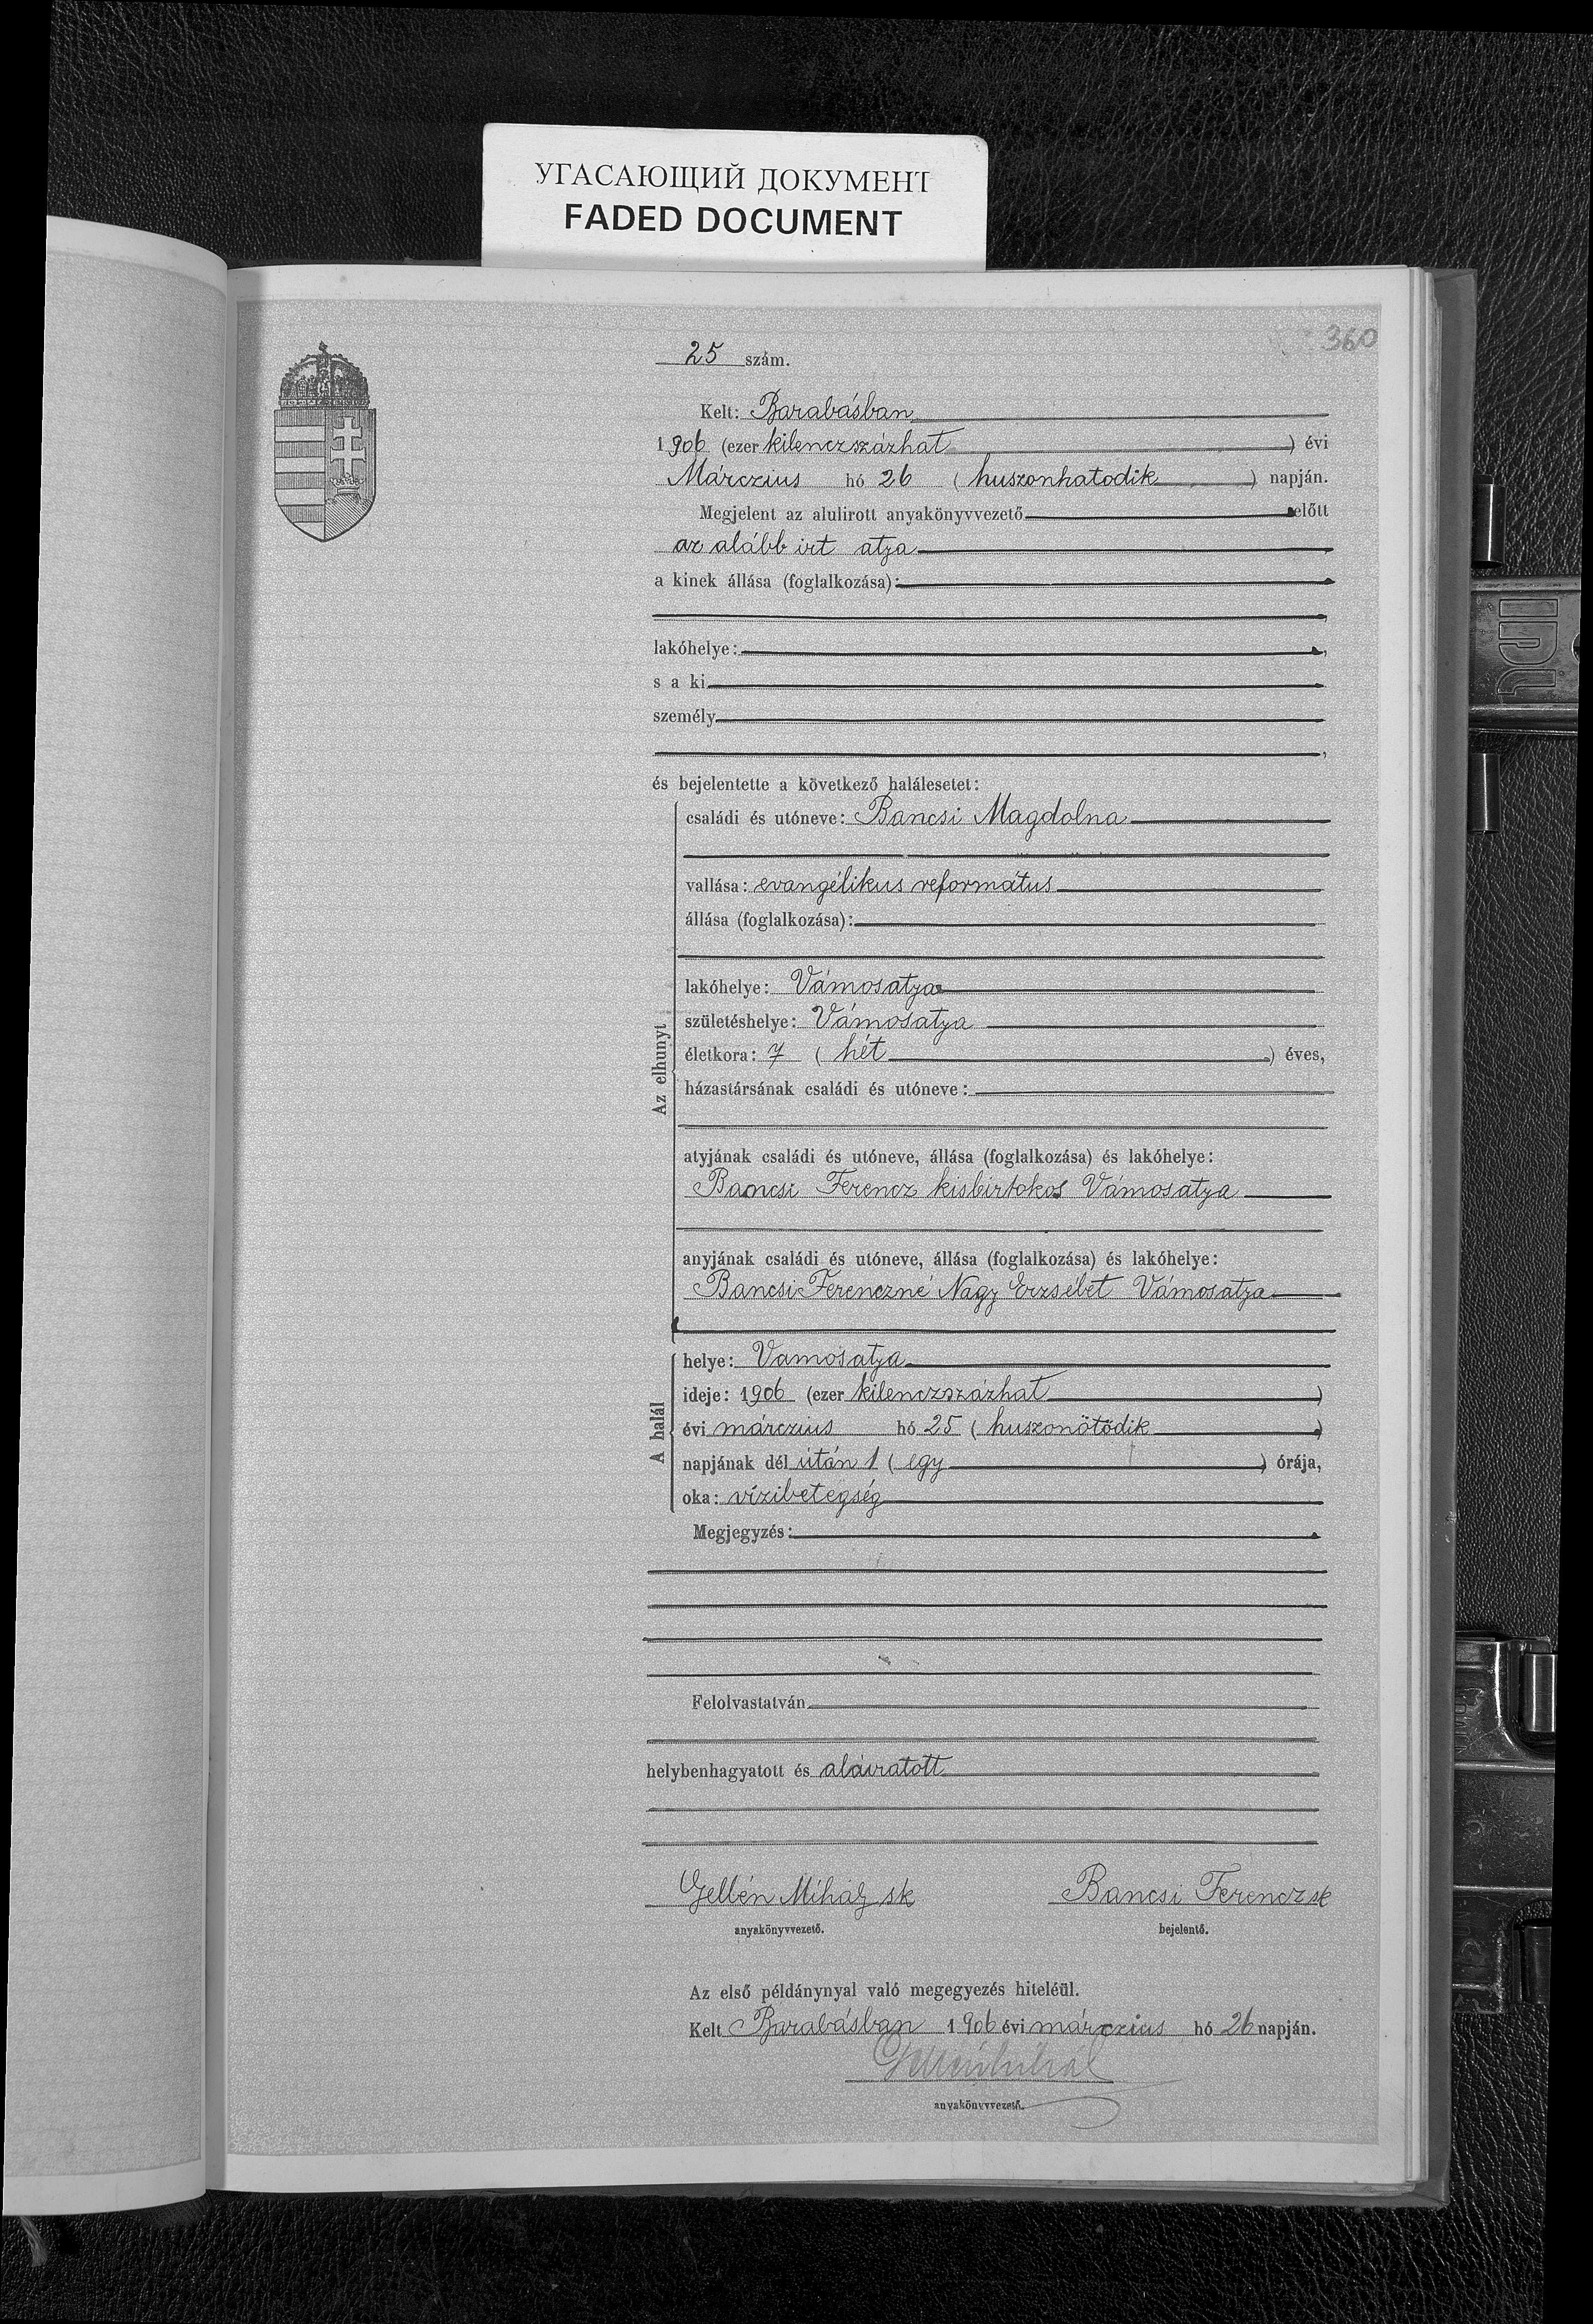 УГАСАЮЩИЙ ДОКУМЕНТ
FADED DOCUMENT
360
25 szám.
Kelt: Barabásban
1906 (ezer kilenczszázhat) évi
Márczius hó 26 (huszonhatodik) napján.
Megjelent az alulirott anyakönyvvezető előtt
az alább irt atya
a kinek állása (foglalkozása):
lakóhelye: ,
s a ki
személy
,
és bejelentette a következő halálesetet:
Az elhunyt
családi és utóneve: Bancsi Magdolna
vallása: evangélikus református
állása (foglalkozása):
lakóhelye: Vámosatya
születéshelye: Vámosatya
életkora: 7 (hét) éves,
házastársának családi és utóneve:
atyjának családi és utóneve, állása (foglalkozása) és lakóhelye:
Bancsi Ferencz kisbirtokos Vámosatya
anyjának családi és utóneve, állása (foglalkozása) és lakóhelye:
Bancsi Ferenczné Nagy Erzsébet Vámosatya
A halál
helye: Vamosatya
ideje: 1906 (ezer kilenczszázhat)
évi márczius hó 25 (huszonötödik)
napjának dél után 1 (egy) órája,
oka: vízibetegség
Megjegyzés:
Felolvastatván
helybenhagyatott és aláiratott
Gellén Mihály sk Bancsi Ferencz sk
anyakönyvvezető. bejelentő.
Az első példánynyal való megegyezés hiteléül.
Kelt Barabásban 1906 évi márczius hó 26 napján.
anyakönyvvezető.